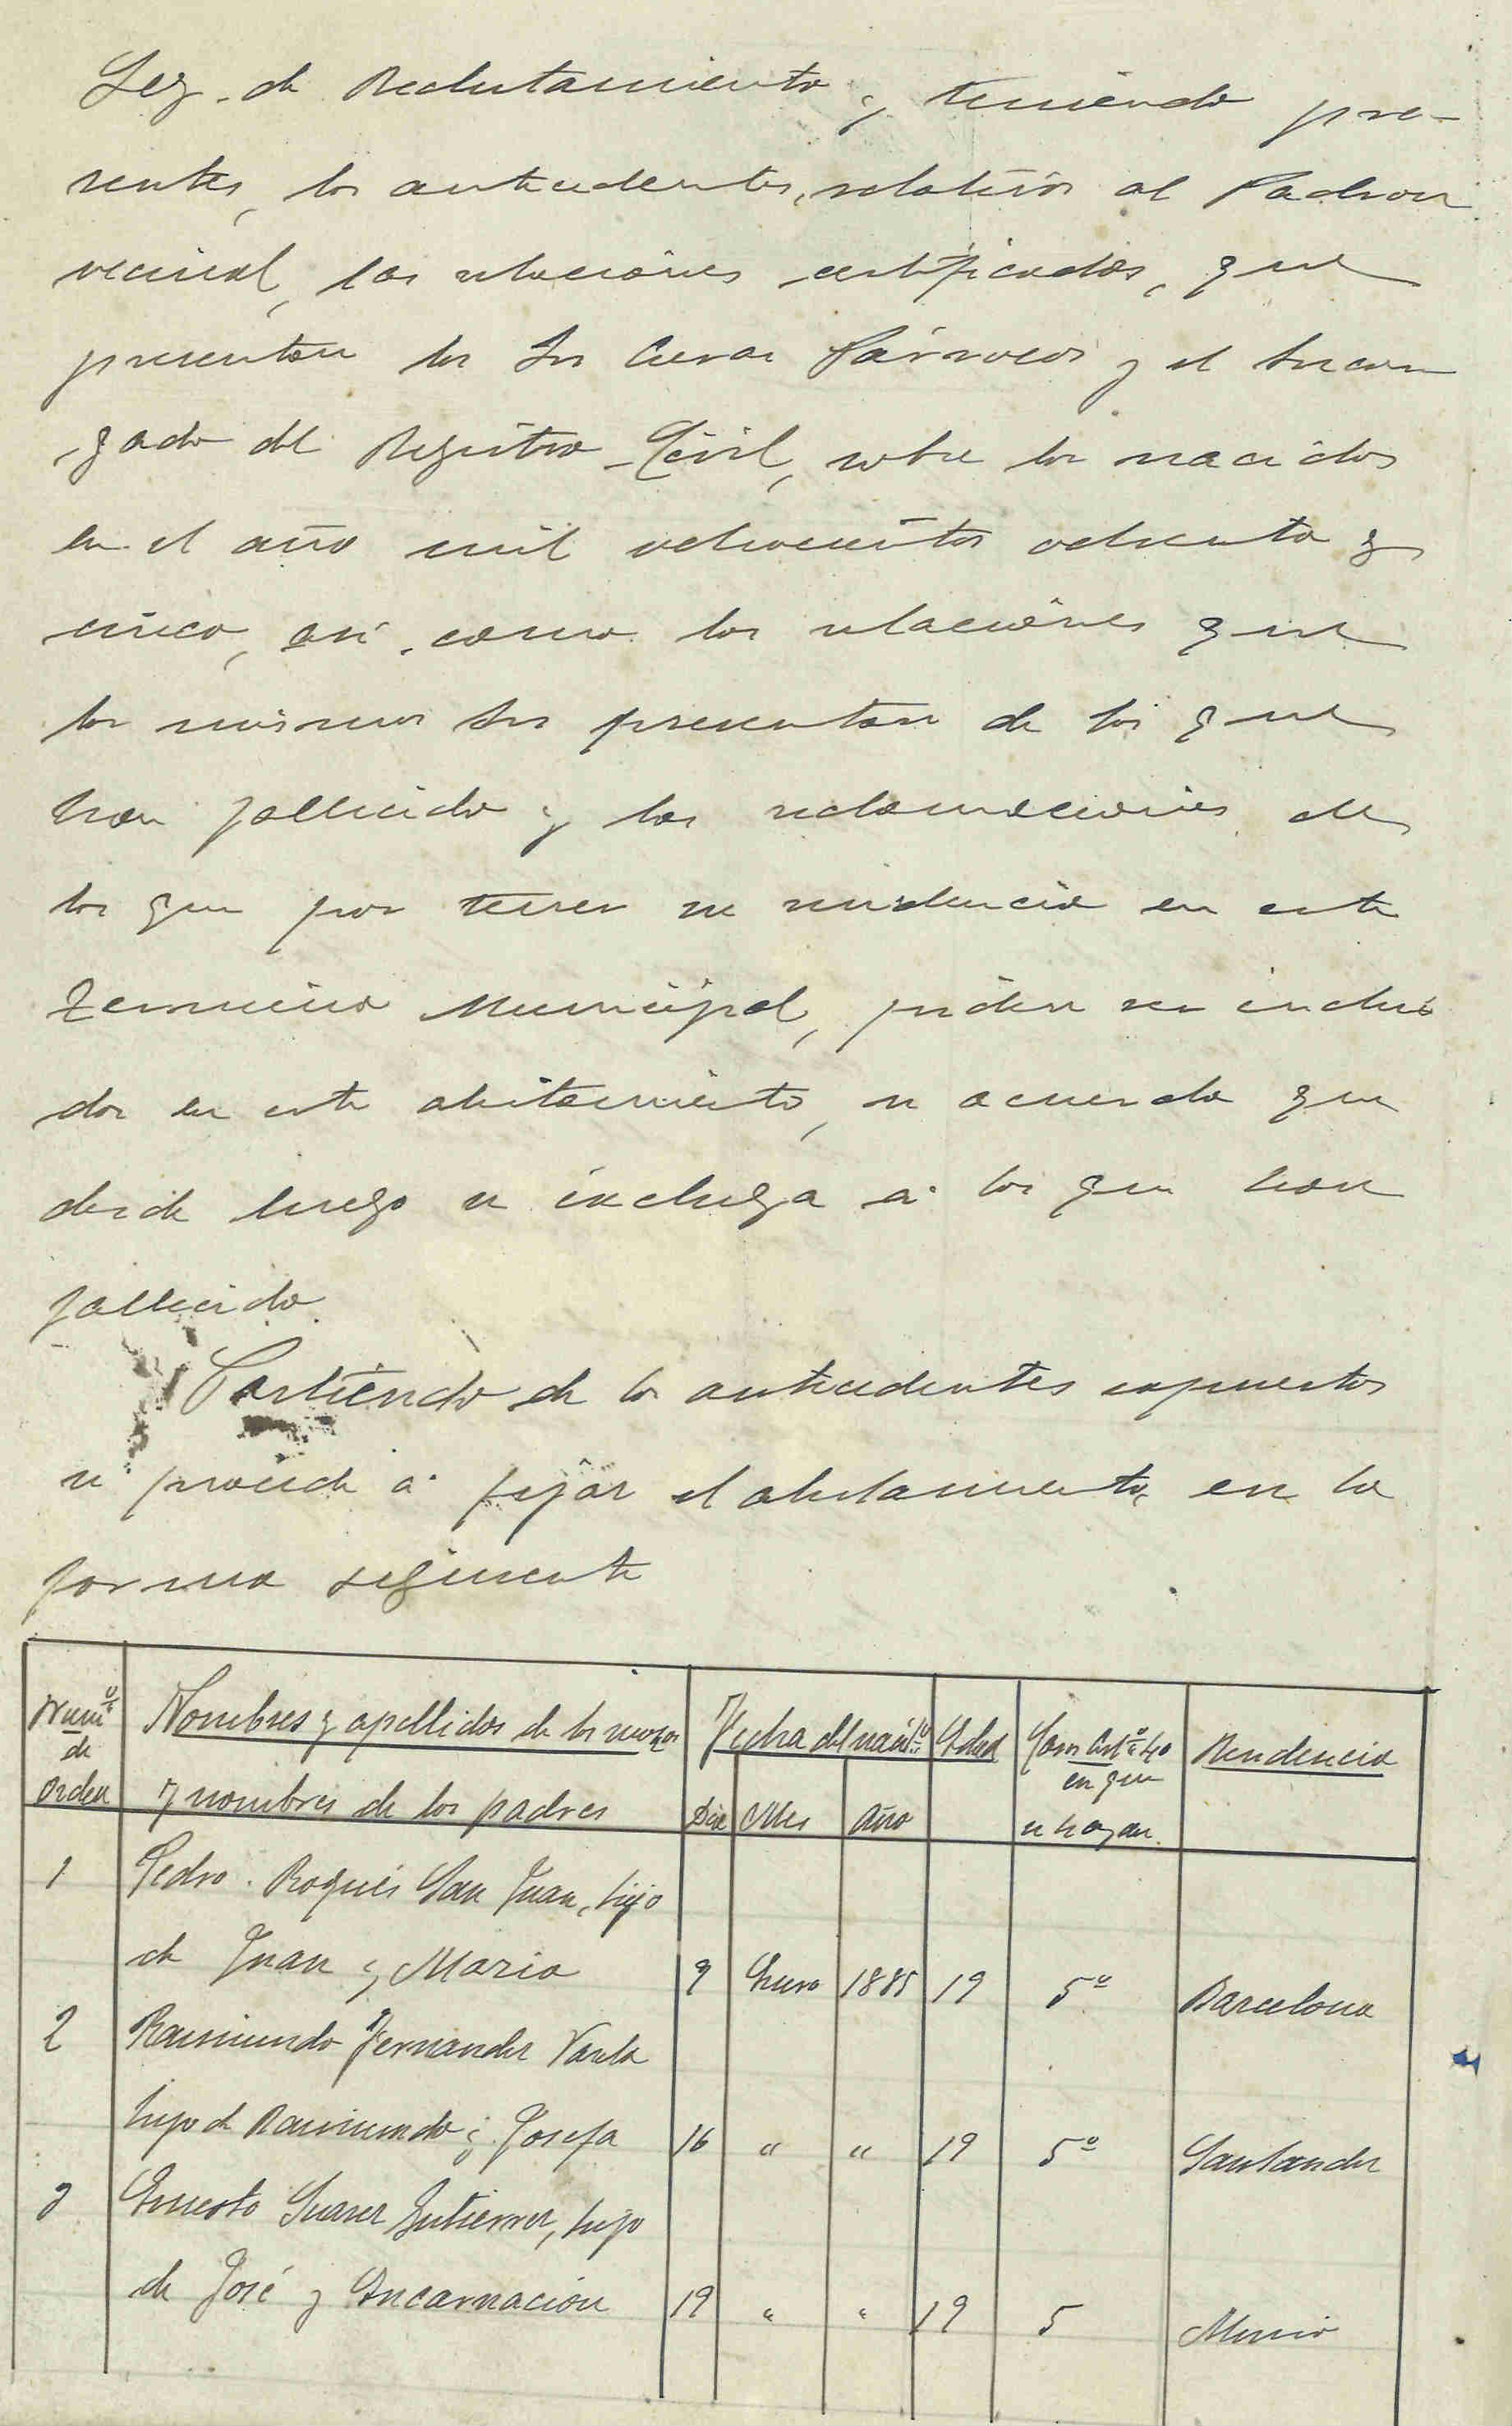 Ley de Reclutamiento y teniendo pre-
sentes, los antecedentes, relativos al Padron
vecinal, las relaciones certificadas, que
presentan los Srs Curas Párrocos y el Encar
gado del Registro Civil, sobre los nacidos
en el año mil ochocientos ochenta y
cinco, asi como las relaciones que
los mismos Srs presentan de los que
han fallecido y las reclamaciones de
los que por tener su residencia en este
Termino Municipal, piden ser inclui
dos en este alistamiento, se acuerda que
desde luego se excluya a los que han
fallecido.
Partiendo de los antecedentes expuestos
se procede a fijar el alistamiento, en la
forma siguiente
Numº de Orden | Nombres y apellidos de los mozos y nombres de los padres | Fecha del nacitº | Edad | Caso Artº 40 en que se hayan. | Residencia
Dia | Mes | Año
1 Pedro Roqués San Juan, hijo
de Juan y Maria 9 Enero 1885 19 5º Barcelona
2 Raimundo Fernandez Varela
hijo de Raimundo y Josefa 16 " " 19 5º Santander
3 Ernesto Suarez Gutierrez, hijo
de José y Encarnación 19 " " 19 5